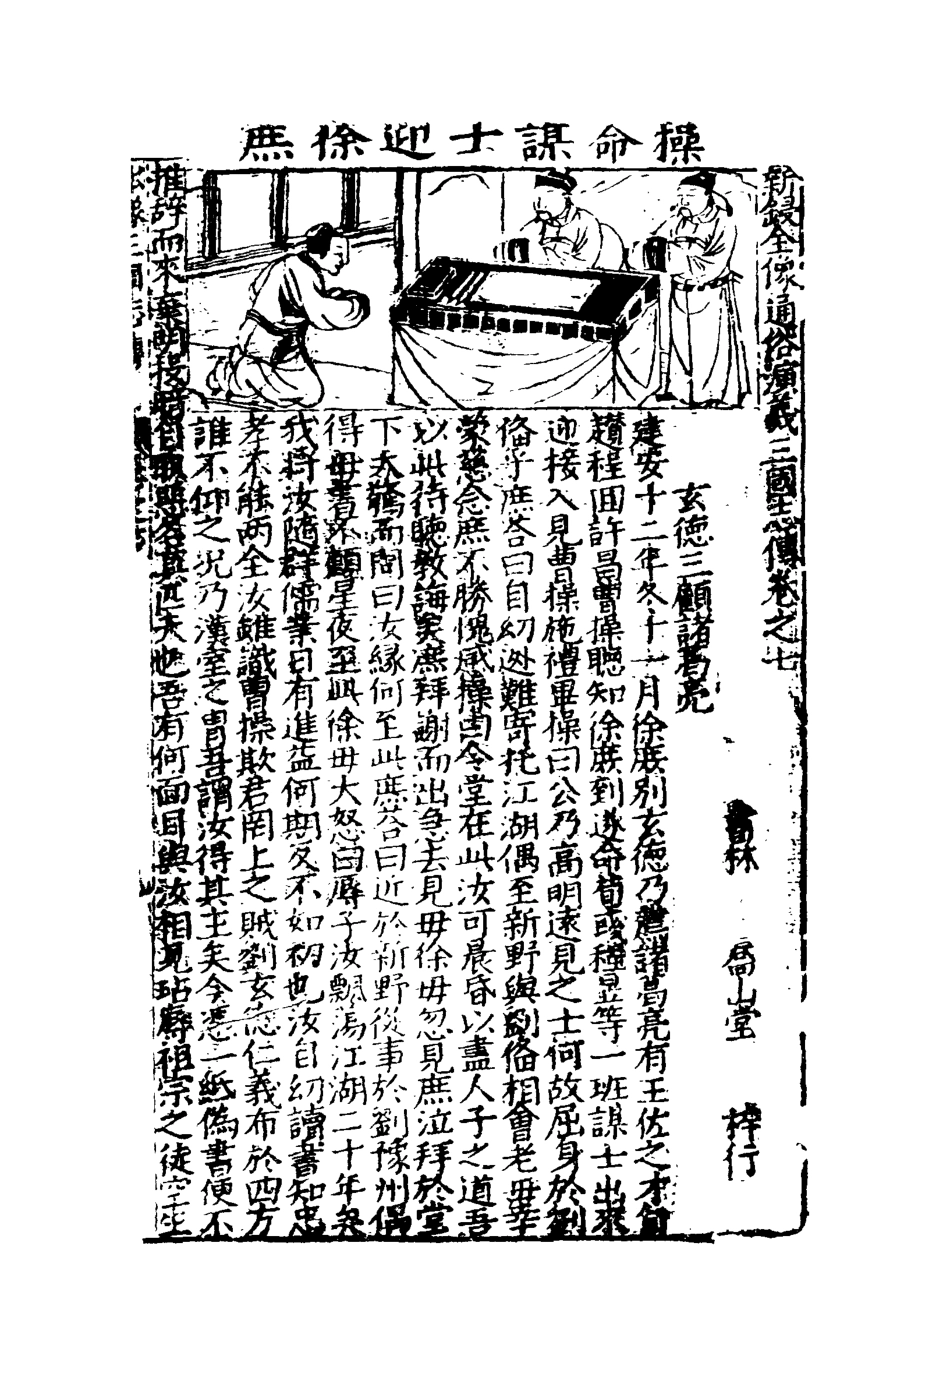 操命謀士迎徐庶
新鋟全像通俗演義三國志傳卷之七
書林 喬山堂 梓行
玄德三顧諸葛亮
建安十二年冬十一月徐庶別玄德乃薦諸葛亮有王佐之才自
趲程回許昌曹操聽知徐庶到遂命荀彧程昱等一班謀士出來
迎接入見曹操施禮畢操曰公乃高明遠見之士何故屈身於劉
俻乎庶答曰自幼逃難寄托江湖偶至新野與劉俻相會老毋幸
蒙慈念庶不勝愧感操曰令堂在此汝可晨昏以盡人子之道吾
以此待聽教誨矣庶拜謝而出急去見毋徐毋忽見庶泣拜於堂
下大驚而問曰汝緣何至此庶答曰近於新野從事於劉豫州偶
得毋書不顧星夜至此徐毋大怒曰辱子汝飄蕩江湖二十年矣
我將汝隨群儒業日有進益何期反不如初也汝自幼讀書知忠
孝不能兩全汝雖識曹操欺君罔上之賊劉玄德仁義布於四方
誰不仰之况乃漢室之冑吾謂汝得其主矣今憑一紙偽書便不
推辞而來棄明投暗自取惡名真匹夫也吾有何面目與汝相見玷辱祖宗之徒空生